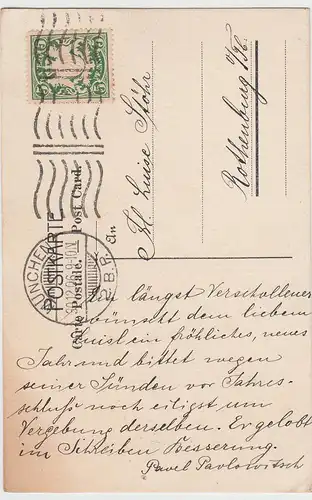 5 5
POSTKARTE
Carte Postale. Post Card.
MÜNCHEN
2.B.P.
An
Frl. Luise Stöhr
Rothenburg o/Tbr.
Ein längst Verschollener
wünscht dem lieben
Luisl ein fröhliches, neues
Jahr und bittet wegen
seiner Sünden vor Jahres-
schluss noch eiligst um
Vergebung derselben. Er gelobt
im Schreiben Besserung.
Pavel Pavlowitsch